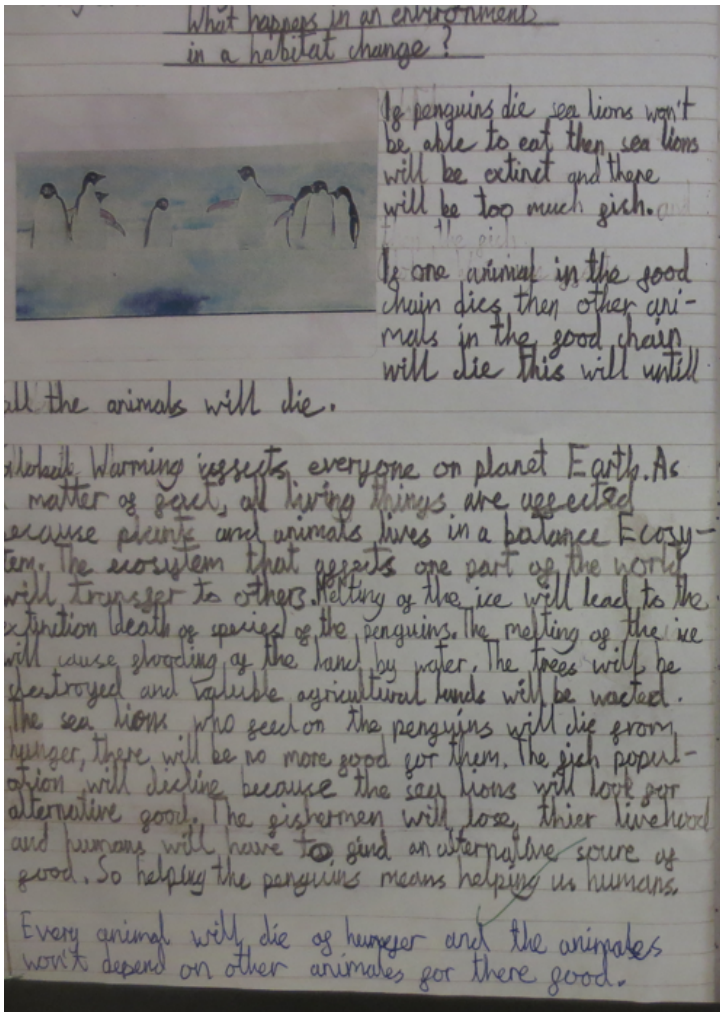 What happens in an environment
in a habitat change?
If penguins die sea lions won't
be able to eat then sea lions
will be extinct and there
will be too much fish. and
then the fish
If one animal in the food
chain dies then other ani-
mals in the food chain
will die this will untill
all the animals will die.
Global Warming affects everyone on planet Earth. As
matter of fact, all living things are affected
because plants and animals lives in a balance Ecosy-
tem. The ecosytem that affects one part of the world
will transfer to others. Melting of the ice will lead to the
extinction death of species of the penguins. The melting of the ice
will cause flooding of the land by water. The trees will be
destroyed and valuble agricultural lands will be wasted.
The sea lions who feed on the penguins will die from
hunger, there will be no more food for them. The fish popul-
ation will decline because the sea lions will look for
alternative food. The fishermen will lose thier livehood
and humans will have to find an alternative soure of
food. So helping the penguins means helping us humans.
Every animal will die of hunger and the animales
won't depend on other animales for there food.